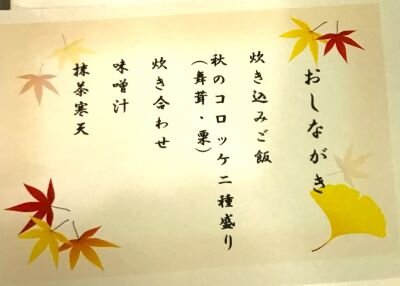 おしながき
炊き込みご飯
秋のコロッケ二種盛り
(舞茸・栗)
炊き合わせ
味噌汁
抹茶寒天